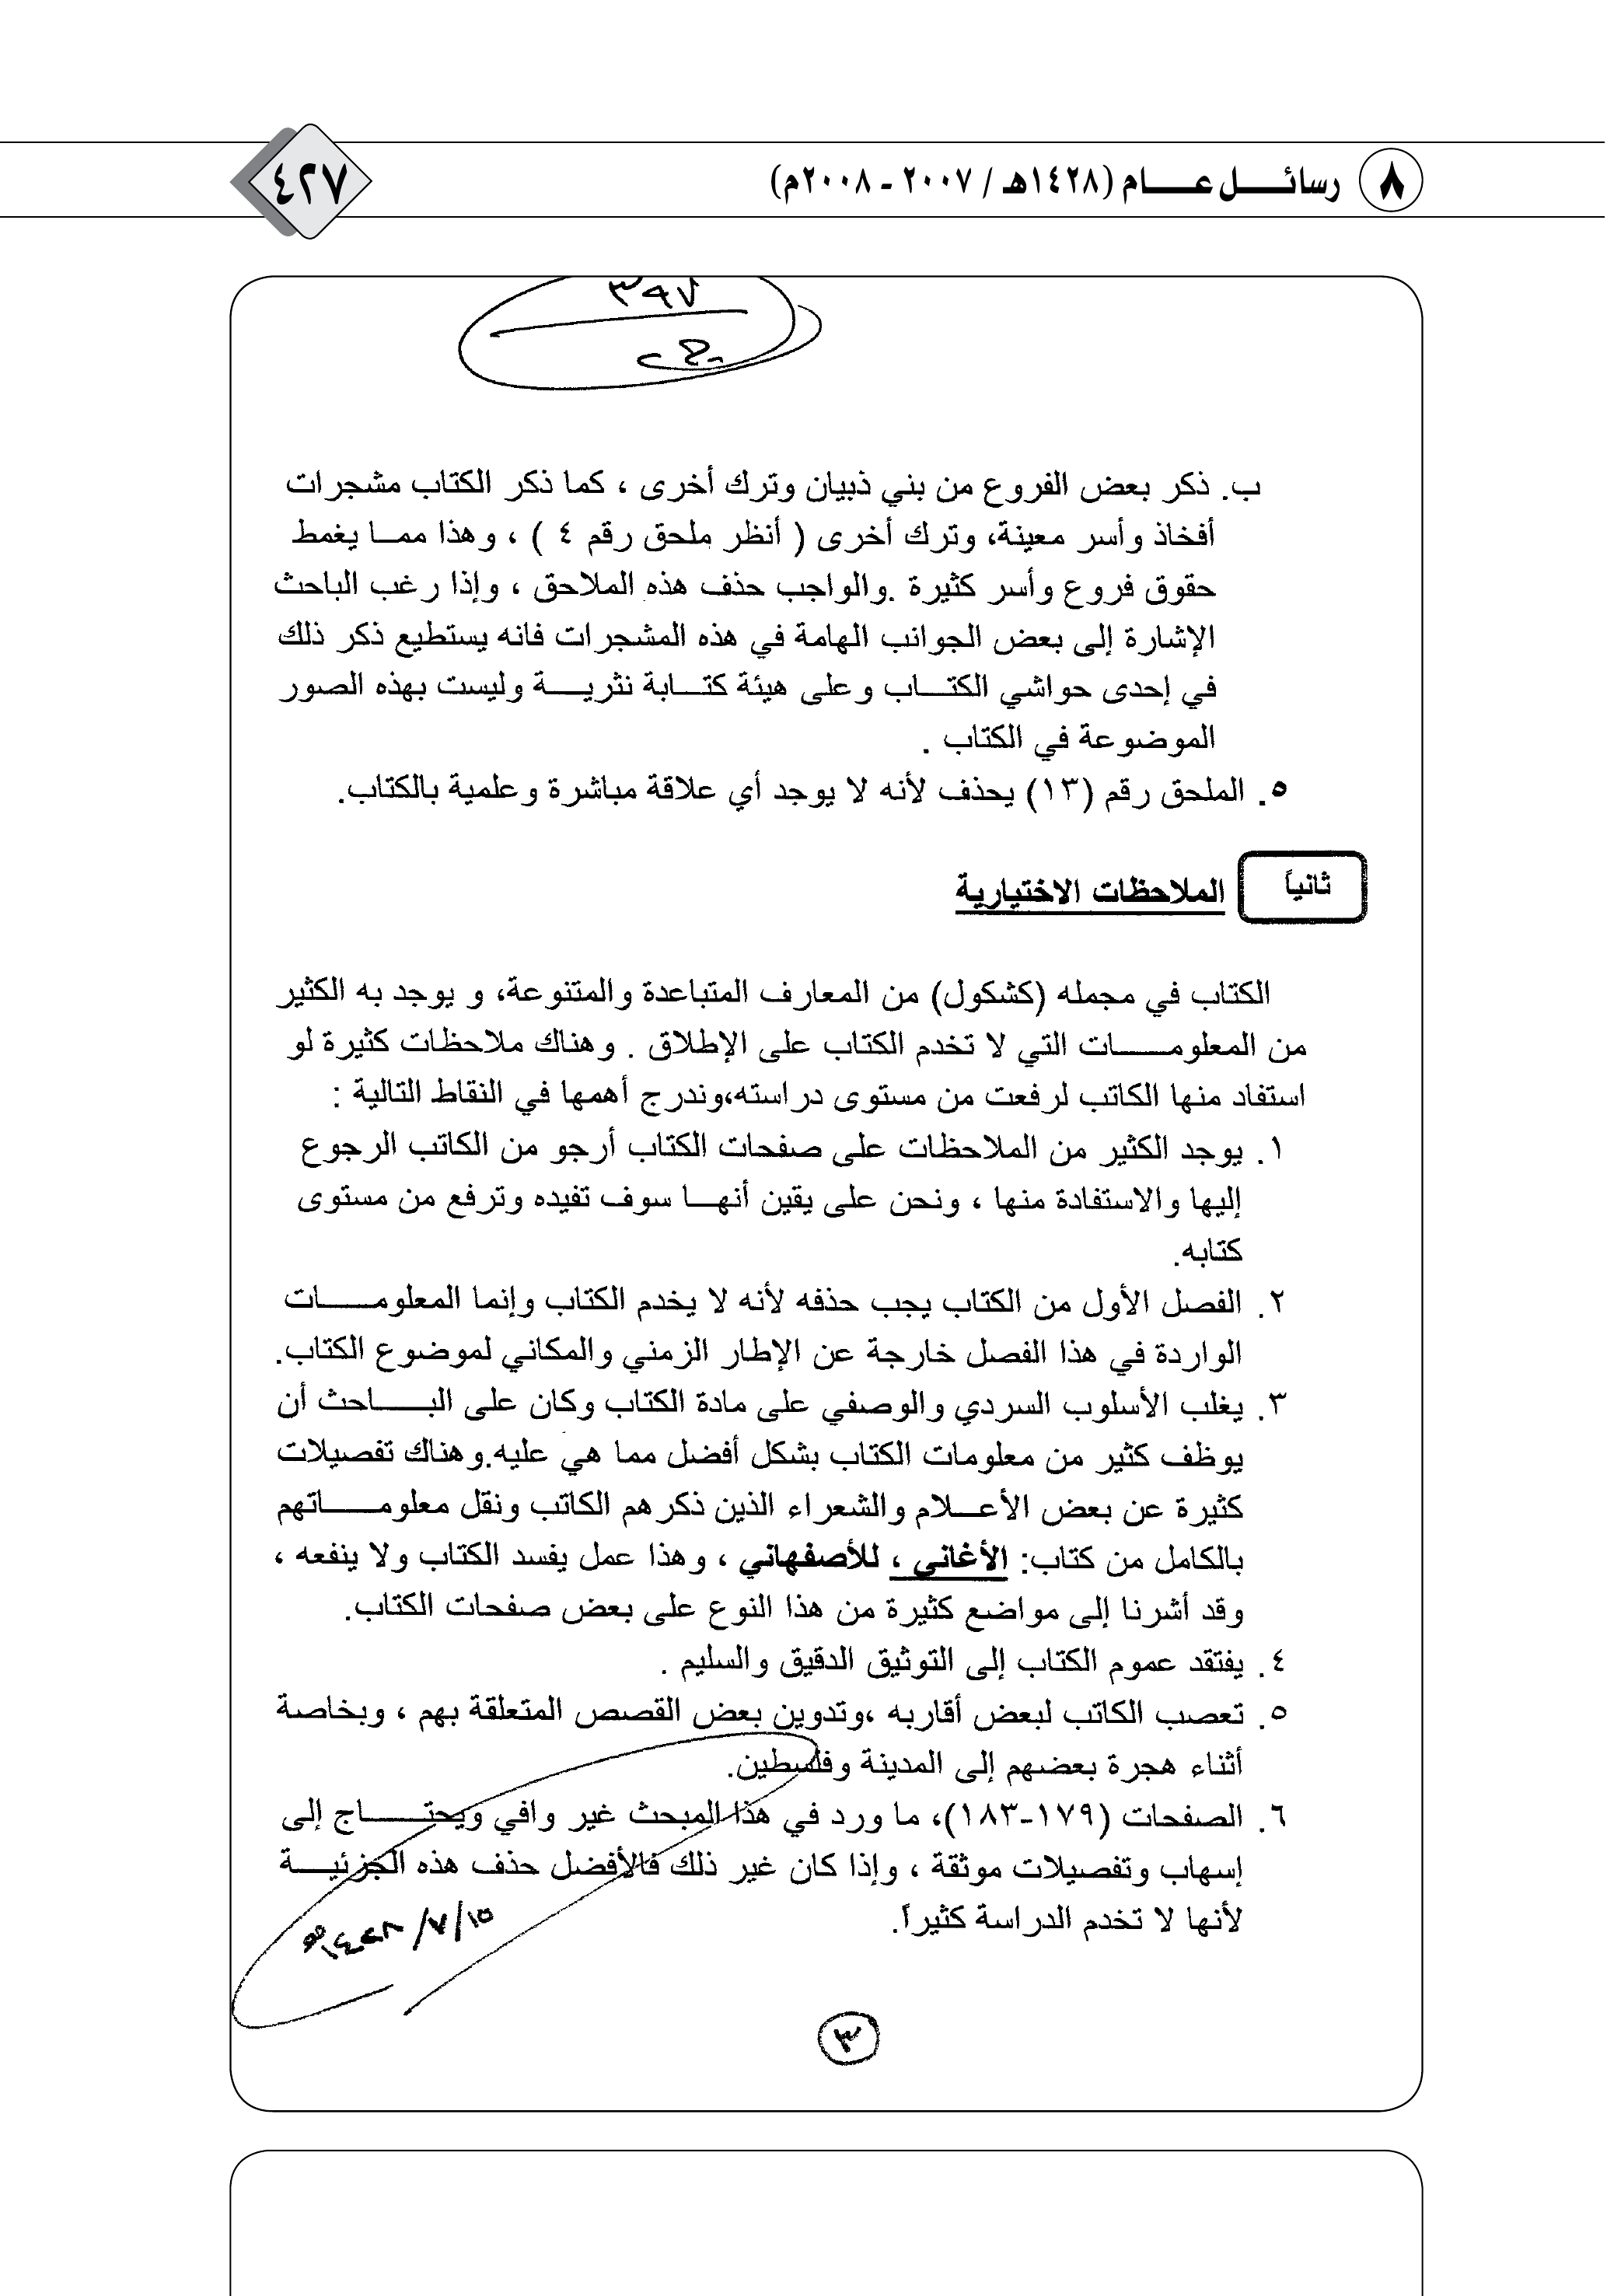 ٨ رسائل عام (١٤٢٨هـ / ٢٠٠٧ - ٢٠٠٨م)
٤٢٧
٣٩٧
ب. ذكر بعض الفروع من بني ذبيان وترك أخرى ، كما ذكر الكتاب مشجرات
أفخاذ وأسر معينة، وترك أخرى ( أنظر ملحق رقم ٤ ) ، وهذا مما يغمط
حقوق فروع وأسر كثيرة .والواجب حذف هذه الملاحق ، وإذا رغب الباحث
الإشارة إلى بعض الجوانب الهامة في هذه المشجرات فانه يستطيع ذكر ذلك
في إحدى حواشي الكتاب وعلى هيئة كتابة نثرية وليست بهذه الصور
الموضوعة في الكتاب .
٥. الملحق رقم (١٣) يحذف لأنه لا يوجد أي علاقة مباشرة وعلمية بالكتاب.
ثانياً الملاحظات الاختيارية
الكتاب في مجمله (كشكول) من المعارف المتباعدة والمتنوعة، و يوجد به الكثير
من المعلومات التي لا تخدم الكتاب على الإطلاق . وهناك ملاحظات كثيرة لو
استفاد منها الكاتب لرفعت من مستوى دراسته،وندرج أهمها في النقاط التالية :
١. يوجد الكثير من الملاحظات على صفحات الكتاب أرجو من الكاتب الرجوع
إليها والاستفادة منها ، ونحن على يقين أنها سوف تفيده وترفع من مستوى
كتابه.
٢. الفصل الأول من الكتاب يجب حذفه لأنه لا يخدم الكتاب وإنما المعلومات
الواردة في هذا الفصل خارجة عن الإطار الزمني والمكاني لموضوع الكتاب.
٣. يغلب الأسلوب السردي والوصفي على مادة الكتاب وكان على الباحث أن
يوظف كثير من معلومات الكتاب بشكل أفضل مما هي عليه.وهناك تفصيلات
كثيرة عن بعض الأعلام والشعراء الذين ذكرهم الكاتب ونقل معلوماتهم
بالكامل من كتاب: الأغاني ، للأصفهاني ، وهذا عمل يفسد الكتاب ولا ينفعه ،
وقد أشرنا إلى مواضع كثيرة من هذا النوع على بعض صفحات الكتاب.
٤. يفتقد عموم الكتاب إلى التوثيق الدقيق والسليم .
٥. تعصب الكاتب لبعض أقاربه ،وتدوين بعض القصص المتعلقة بهم ، وبخاصة
أثناء هجرة بعضهم إلى المدينة وفلسطين.
٦. الصفحات (١٧٩-١٨٣)، ما ورد في هذا المبحث غير وافي ويحتاج إلى
إسهاب وتفصيلات موثقة ، وإذا كان غير ذلك فالأفضل حذف هذه الجزئية
لأنها لا تخدم الدراسة كثيراً.
١٥/٧/١٤٢٨هـ
٣